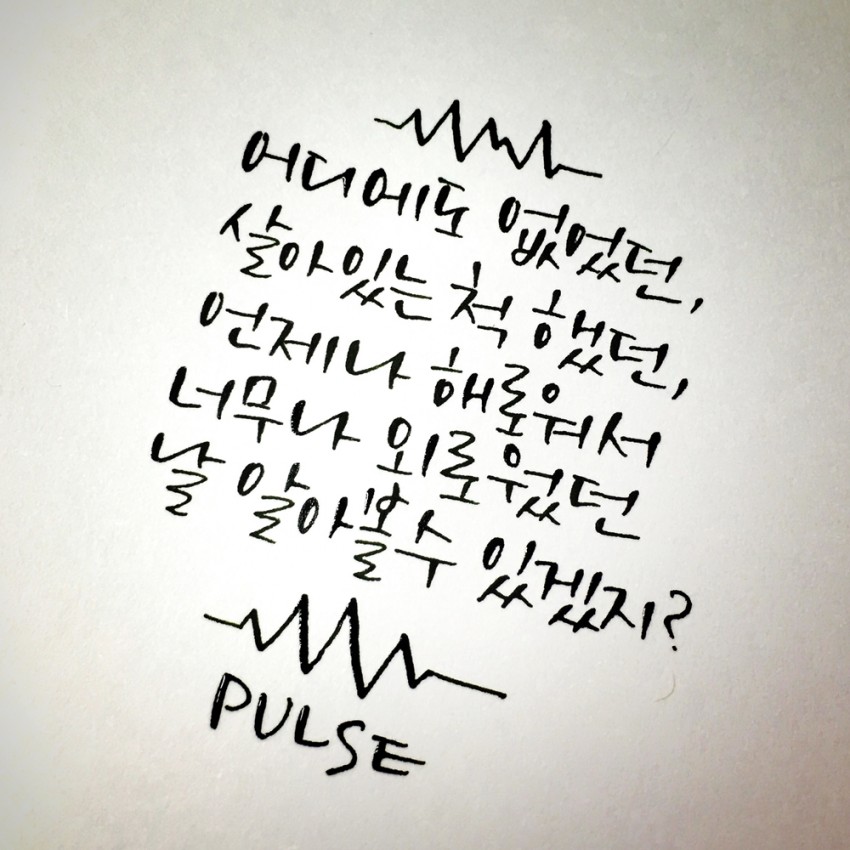 어디에도 없었던,
살아있는 척 했던,
언제나 해로워서
너무나 외로웠던
날 알아볼수 있겠지?
PULSE